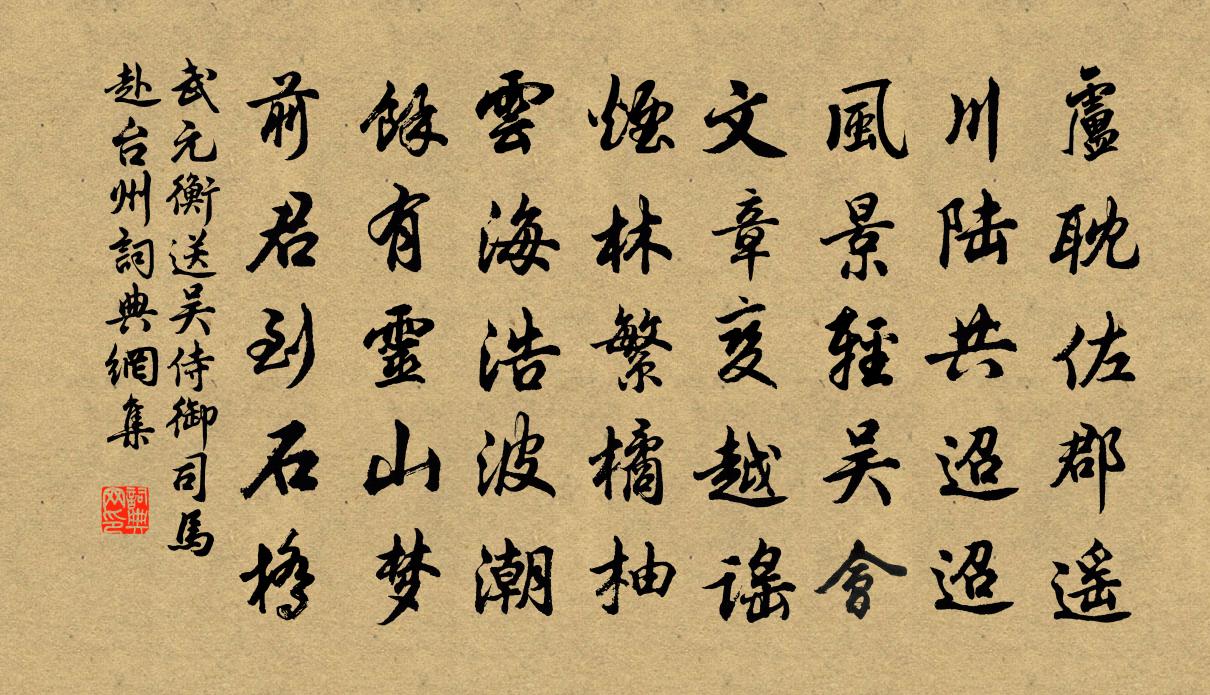 盧耽佐郡遥
川陆共迢迢
風景輕吴會
文章变越谣
烟林繁橘柚
雲海浩波潮
餘有靈山梦
前君到石橋
武元衡送吴侍御司馬
赴台州詞典網集
詞典网印